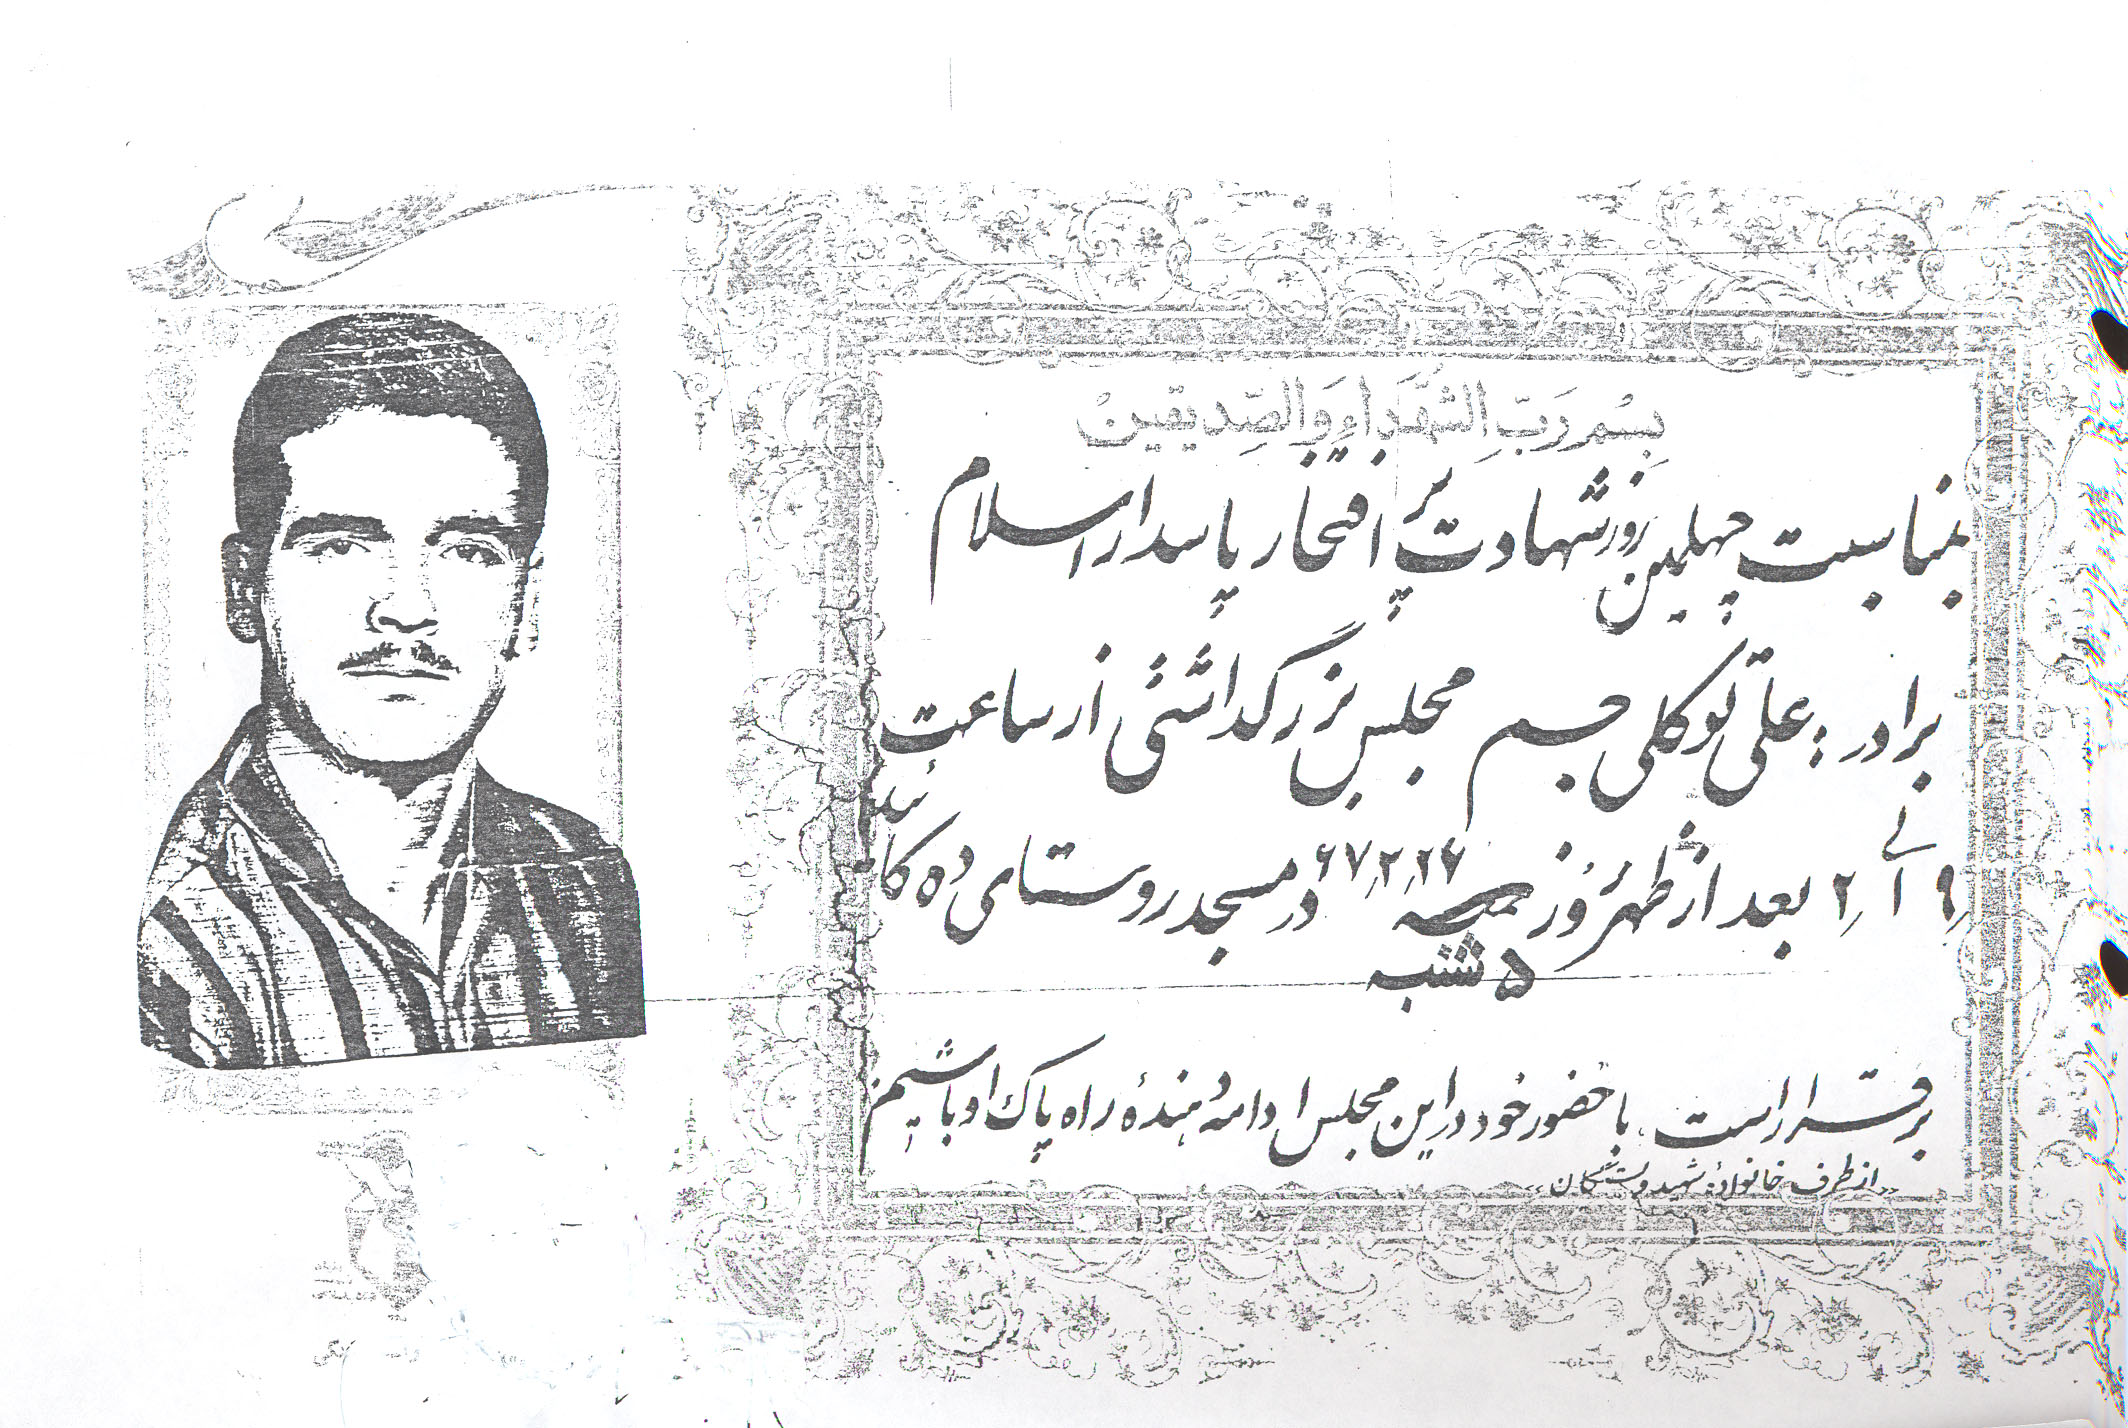 بِسْمِ رَبِّ الشُّهَداءِ وَالصِّدیقین
بمناسبت چهلمین روز شهادت پر افتخار پاسدار اسلام
برادر : علی توکلی جم مجلس بزرگداشتی از ساعت
۲ بعد از ظهر روز ۶۷٫۲٫۲۶ در مسجد روستای ده
۵ شنبه
برقرار است با حضور خود در این مجلس ادامه دهنده راه پاک او باشیم
«از طرف خانواده شهید و بستگان»